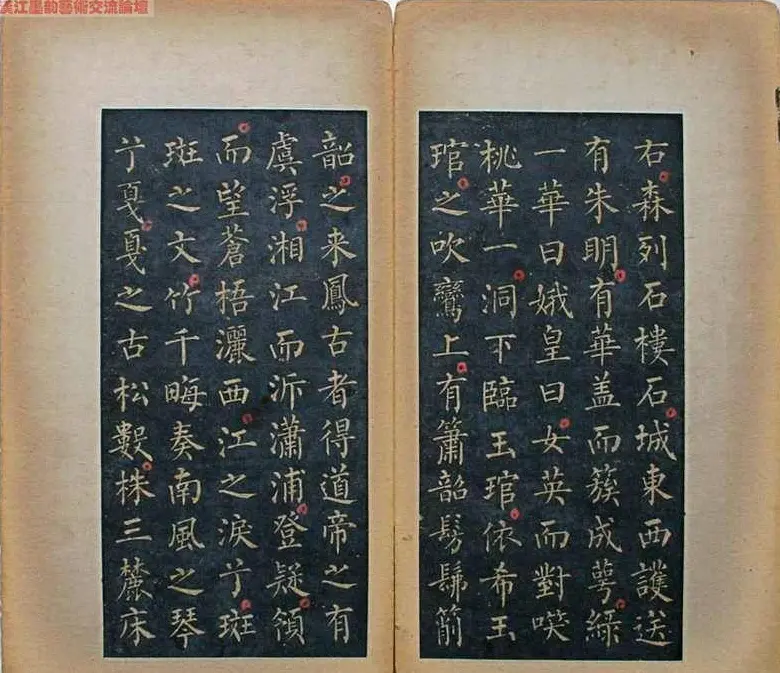 漢江墨韵藝術交流論壇
右森列石樓石城東西護送
有朱明有華盖而簇成萼緑
一華曰娥皇曰女英而對嘆
桃華一洞下臨玉琯依希玉
琯之吹鸞上有簫韶髣髴簡
韶之来鳳古者得道帝之有
虞浮湘江而泝瀟浦登疑領
而望蒼梧灑西江之淚兮斑
斑之文竹千畮奏南風之琴
兮戛戛之古松數株三麓床